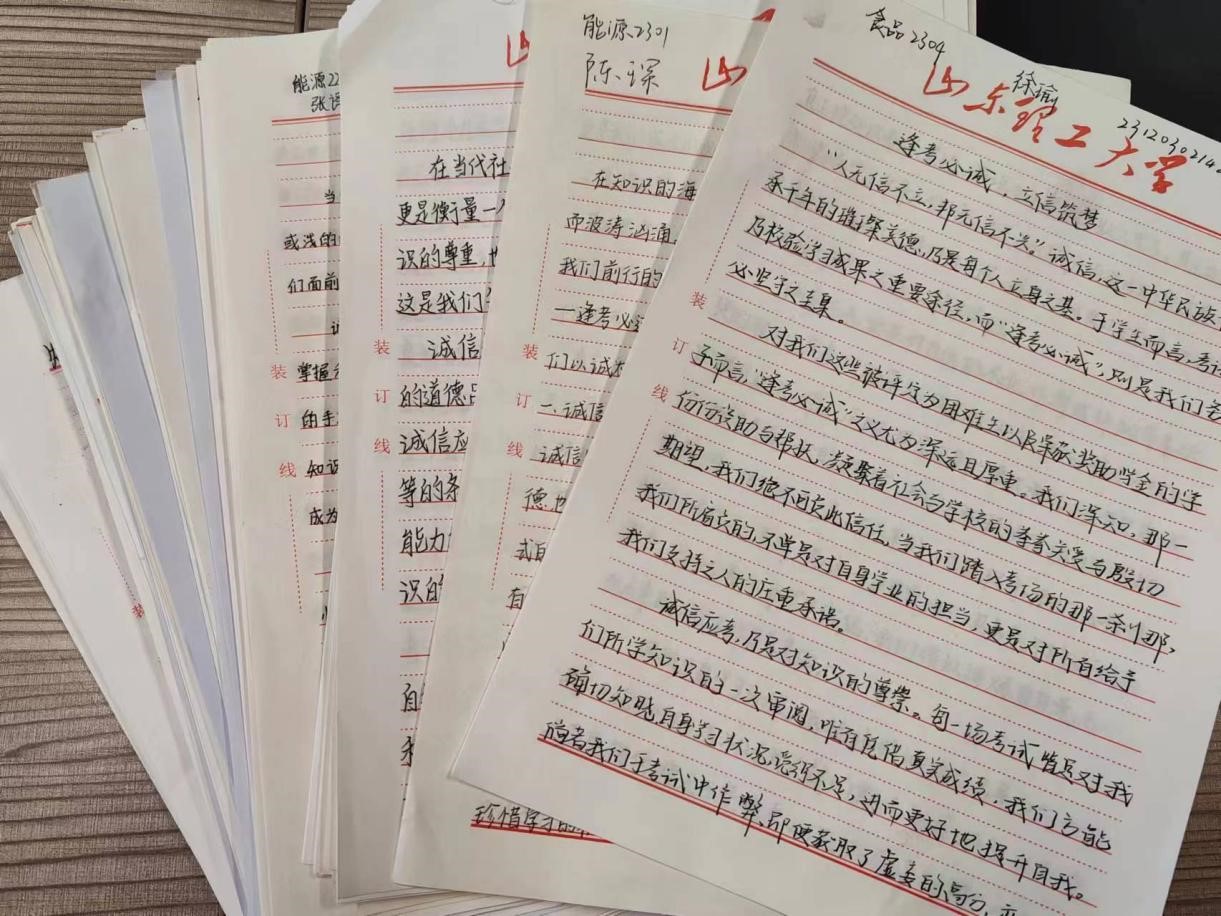 食品2304
徐瑜
2312030214
山东理工大学
逢考必诚，立信筑梦
"人无信不立，邦无信不兴"。诚信，这一中华民族
承千年的璀璨美德，乃是每个人立身之基。于学生而言，考试
乃校验学习成果之重要途径，而"逢考必诚"，则是我们务
必坚守之圭臬。
对我们这些被评定为困难生以及荣获奖助学金的学
子而言，"逢考必诚"之义尤为深远且厚重。我们深知，那一
份份资助与帮扶，凝聚着社会与学校的关爱与殷切
期望，我们绝不可负此信任，当我们踏入考场的那一刹那，
我们所肩负的，不单是对自身学业的担当，更是对所有给予
我们支持之人的庄重承诺。
诚信应考，乃是对知识的尊崇。每一场考试皆是对我
们所学知识的一次审阅，唯有凭借真实成绩，我们方能
确切知晓自身学习状况，觉察不足，进而更好地提升自我。
倘若我们于考试中作弊，即便获取了虚妄的高分，亦
装
订
线
能源2301
陈琛
山
在知识的海
而波涛汹涌，
我们前行的
一逢考必
们以诚
二、诚信
诚信
德，也
式
有
珍惜学习的
装
订
线
山
在当代社
更是衡量一个
识的尊重，也
这是我们
诚信
的道德品
诚信应
等的条
能力
识的
自
装
订
线
能源22
张
当
或浅的
们面前
诚
掌握
的手
知识
成为
装
订
线
装